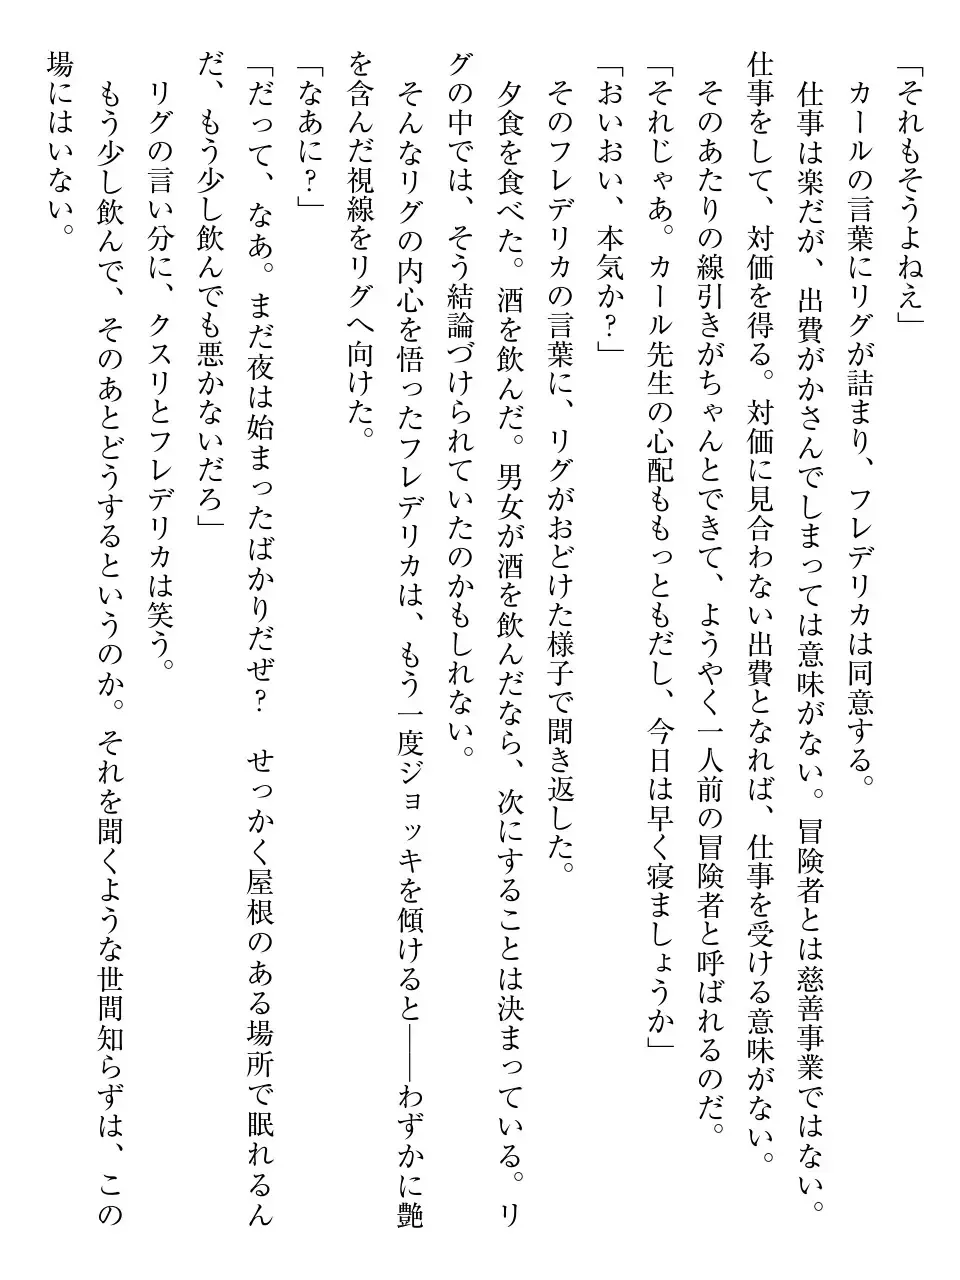 「それもそうよねえ」
　カールの言葉にリグが詰まり、フレデリカは同意する。
　仕事は楽だが、出費がかさんでしまっては意味がない。冒険者とは慈善事業ではない。
仕事をして、対価を得る。対価に見合わない出費となれば、仕事を受ける意味がない。
　そのあたりの線引きがちゃんとできて、ようやく一人前の冒険者と呼ばれるのだ。
「それじゃあ。カール先生の心配ももっともだし、今日は早く寝ましょうか」
「おいおい、本気か？」
　そのフレデリカの言葉に、リグがおどけた様子で聞き返した。
　夕食を食べた。酒を飲んだ。男女が酒を飲んだなら、次にすることは決まっている。リ
グの中では、そう結論づけられていたのかもしれない。
　そんなリグの内心を悟ったフレデリカは、もう一度ジョッキを傾けると――わずかに艶
を含んだ視線をリグへ向けた。
「なあに？」
「だって、なあ。まだ夜は始まったばかりだぜ？　せっかく屋根のある場所で眠れるん
だ、もう少し飲んでも悪かないだろ」
　リグの言い分に、クスリとフレデリカは笑う。
　もう少し飲んで、そのあとどうするというのか。それを聞くような世間知らずは、この
場にはいない。